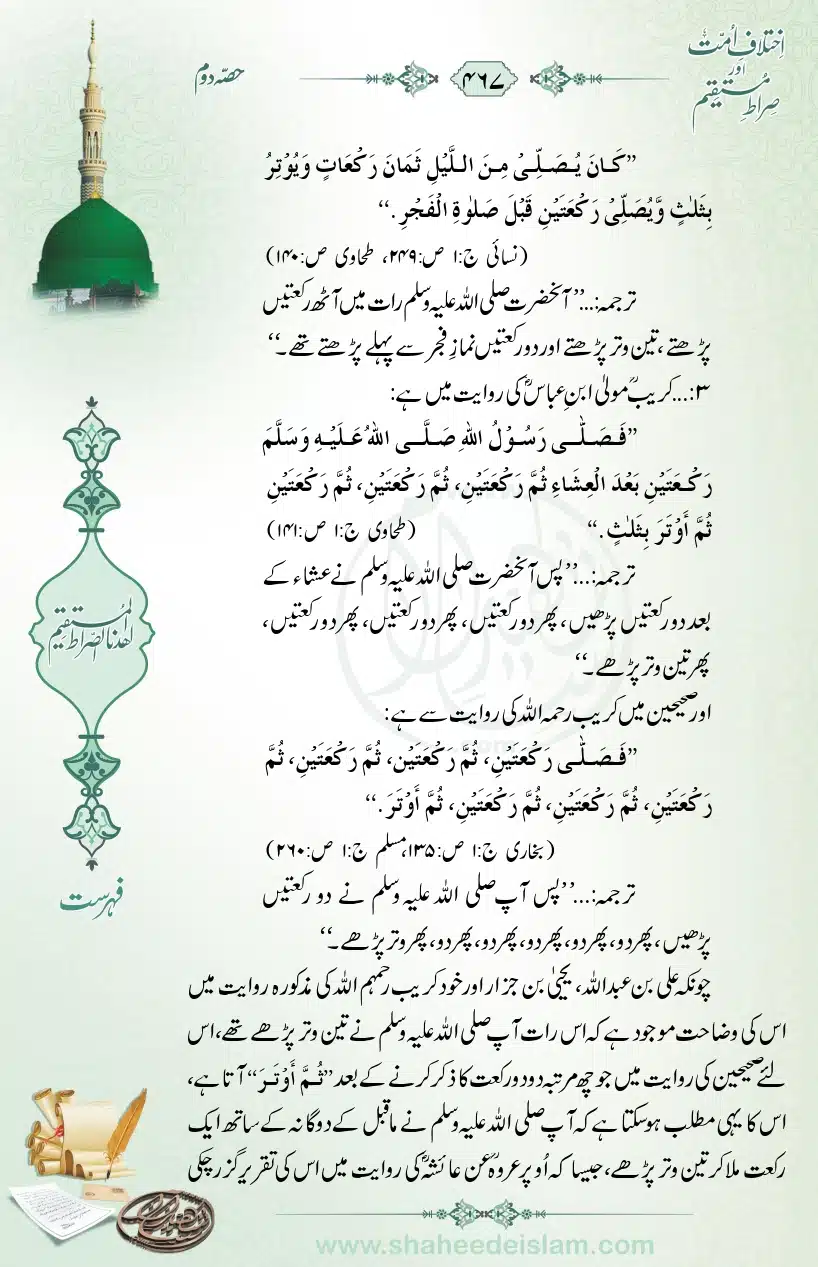 اِختلافِ اُمّت
اور
صِراطِ مُستقیم
۴۶۷
حصّہ دوم
”کَانَ یُصَلِّیْ مِنَ اللَّیْلِ ثَمَانَ رَکْعَاتٍ وَیُوْتِرُ
بِثَلٰثٍ وَّیُصَلِّیْ رَکْعَتَیْنِ قَبْلَ صَلٰوۃِ الْفَجْرِ.“
(نسائی ج:۱ ص:۲۴۹، طحاوی ص:۱۴۰)
ترجمہ:...”آنحضرت صلی اللہ علیہ وسلم رات میں آٹھ رکعتیں
پڑھتے، تین وتر پڑھتے اور دو رکعتیں نمازِ فجر سے پہلے پڑھتے تھے۔“
۳:...کریبؒ مولیٰ ابنِ عباسؓ کی روایت میں ہے:
”فَصَلّٰی رَسُوْلُ اللہِ صَلَّی اللہُ عَلَیْہِ وَسَلَّمَ
رَکْعَتَیْنِ بَعْدَ الْعِشَاءِ ثُمَّ رَکْعَتَیْنِ، ثُمَّ رَکْعَتَیْنِ، ثُمَّ رَکْعَتَیْنِ
ثُمَّ أَوْتَرَ بِثَلٰثٍ.“ (طحاوی ج:۱ ص:۱۴۱)
ترجمہ:...”پس آنحضرت صلی اللہ علیہ وسلم نے عشاء کے
بعد دو رکعتیں پڑھیں، پھر دو رکعتیں، پھر دو رکعتیں، پھر دو رکعتیں،
پھر تین وتر پڑھے۔“
اور صحیحین میں کریب رحمہ اللہ کی روایت سے ہے:
”فَصَلّٰی رَکْعَتَیْنِ، ثُمَّ رَکْعَتَیْن، ثُمَّ رَکْعَتَیْنِ، ثُمَّ
رَکْعَتَیْنِ، ثُمَّ رَکْعَتَیْنِ، ثُمَّ رَکْعَتَیْنِ، ثُمَّ أَوْتَرَ.“
(بخاری ج:۱ ص:۱۳۵، مسلم ج:۱ ص:۲۶۰)
ترجمہ:...”پس آپ صلی اللہ علیہ وسلم نے دو رکعتیں
پڑھیں، پھر دو، پھر دو، پھر دو، پھر دو، پھر دو، پھر وتر پڑھے۔“
چونکہ علی بن عبداللہ، یحییٰ بن جزار اور خود کریب رحمہم اللہ کی مذکورہ روایت میں
اس کی وضاحت موجود ہے کہ اس رات آپ صلی اللہ علیہ وسلم نے تین وتر پڑھے تھے، اس
لئے صحیحین کی روایت میں جو چھ مرتبہ دو دو رکعت کا ذکر کرنے کے بعد ”ثُمَّ أَوْتَرَ“ آتا ہے،
اس کا یہی مطلب ہوسکتا ہے کہ آپ صلی اللہ علیہ وسلم نے ماقبل کے دوگانہ کے ساتھ ایک
رکعت ملاکر تین وتر پڑھے، جیسا کہ اُوپر عروہؒ عن عائشہؓ کی روایت میں اس کی تقریر گزر چکی
اھدنا الصّراط المُستقیم
فہرست
www.shaheedeislam.com